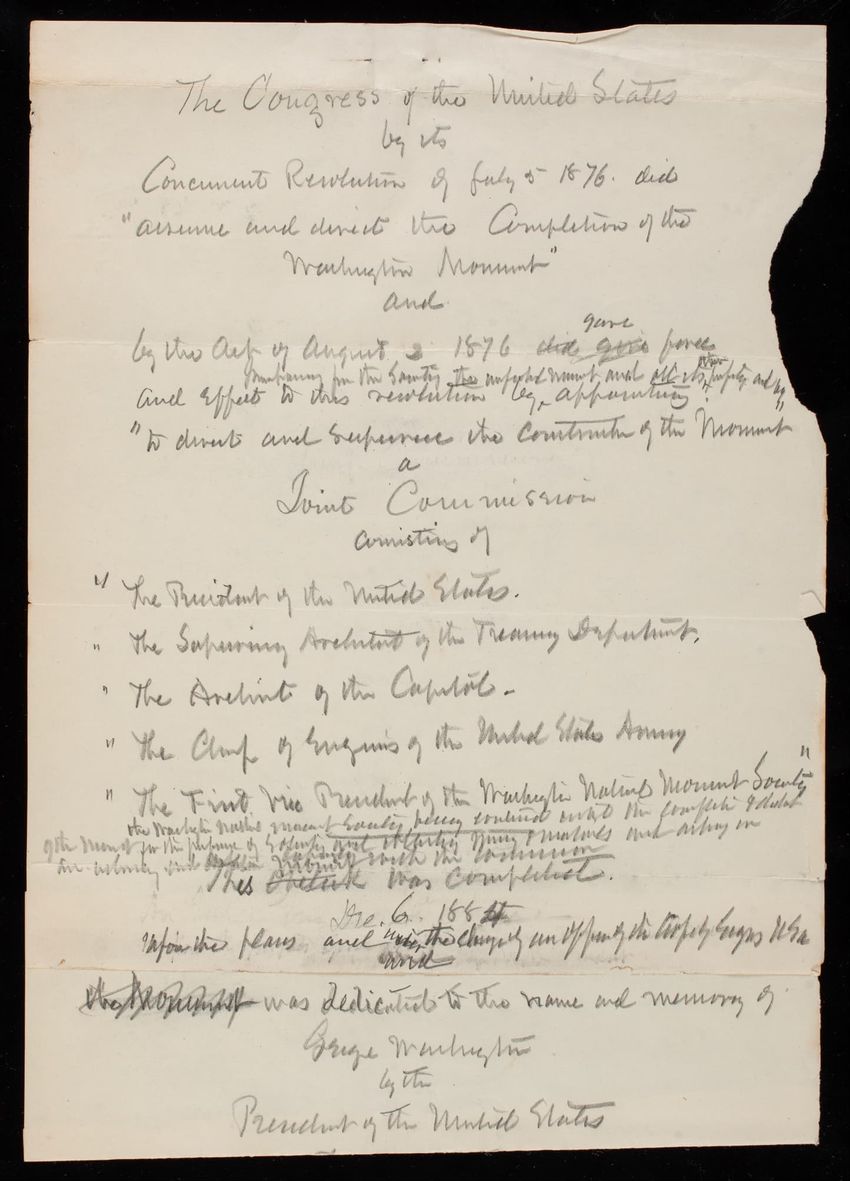 The Congress of the United States
by its
Concurrent Resolution of July 5 1876. did
"assume and direct the Completion of the
Washington Monument"
and
gave
by the Act of August 2 1876 did give force
for the Society the unfinished monument and all its
and Effect to this resolution by appointing
"to direct and supervise the construction of the Monument"
a
Joint Commission
consisting of
"The President of the United States.
"The Supervising Architect of the Treasury Department.
"The Architect of the Capitol -
"The Chief of Engineers of the United States Army
"The First Vice President of the Washington National Monument Society"
the Washington National Monument Society being continued until the completion & dedication
of the Monument for the purpose of
with the commission
This Obelisk was completed.
Dec. 6. 1884
Upon the plans and under the charge of an Officer of the Corps of Engrs USA
and
the Monument was dedicated to the name and memory of
George Washington
by the
President of the United States